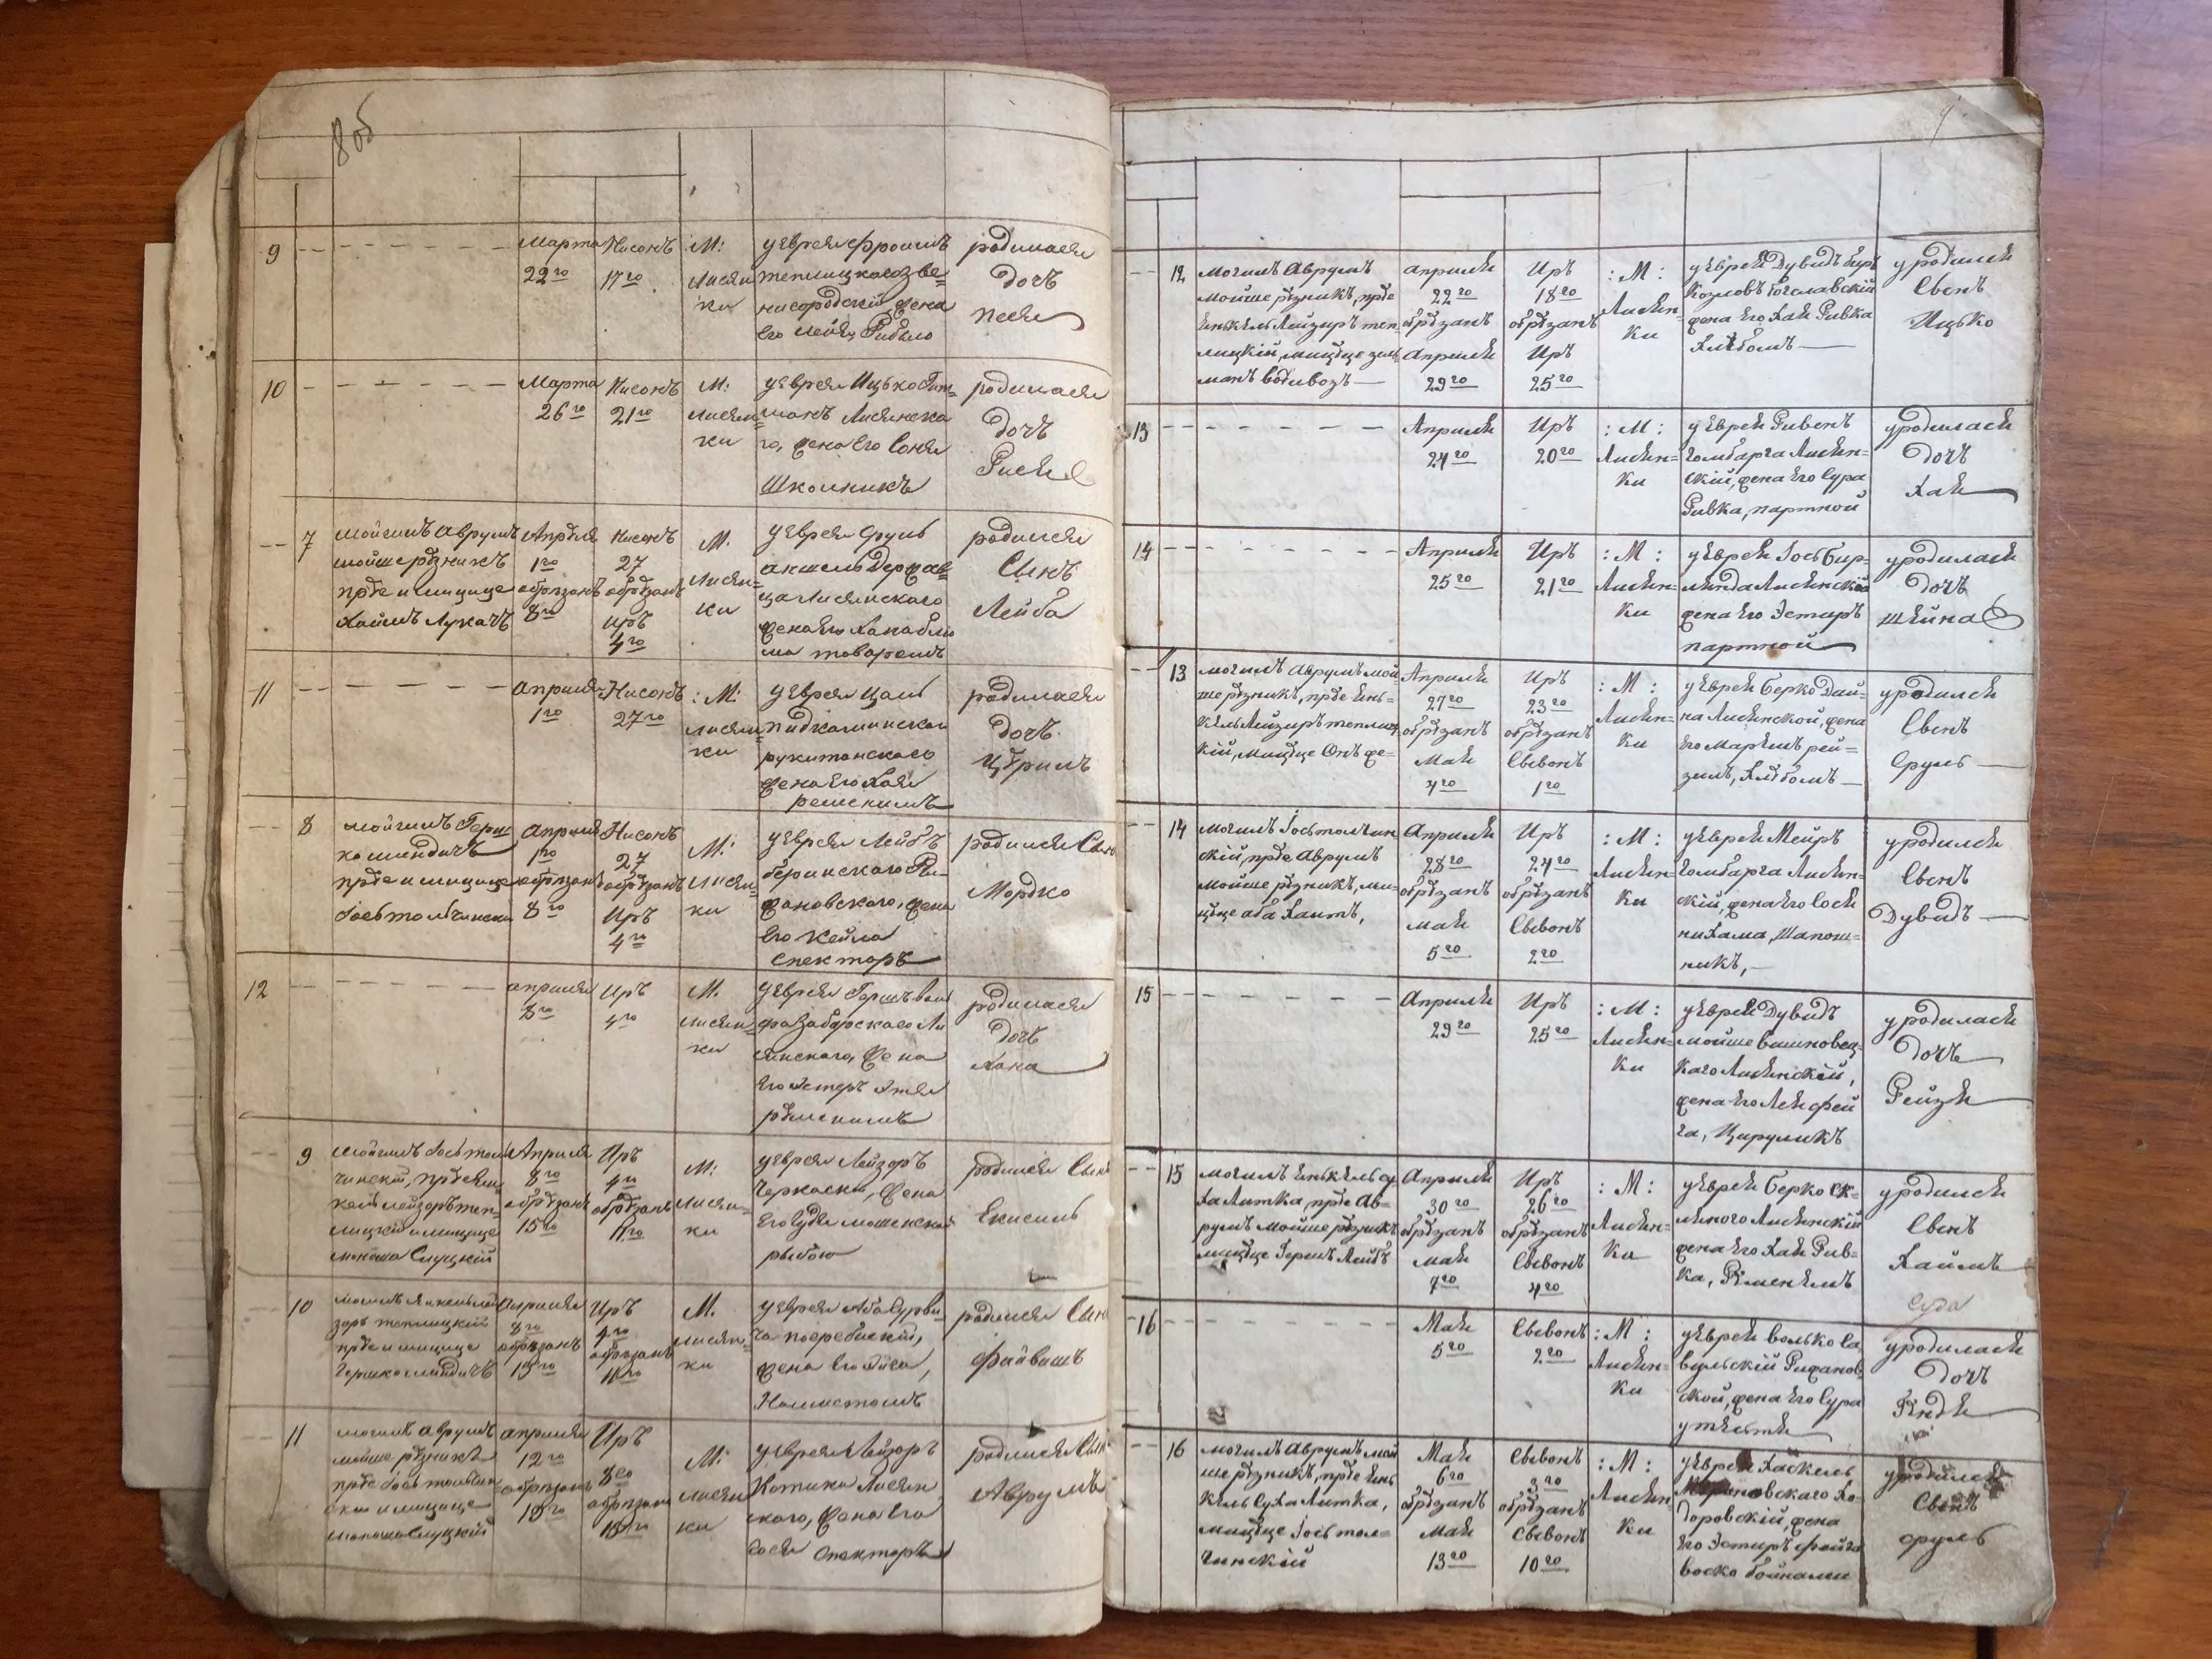 8об
9
Марта
22го
Нисонъ
17го
М:
Лисян
ки
у еврея Фроимъ
теплицкого зве
нигородский, жена
его Лейя, Рибъло
родилася
дочъ
Песя
10
Марта
26го
Нисонъ
21го
М:
Лисян=
ки
у еврея Ицько Гит=
манъ Лисянска
го, жена его Соня
Школникъ
родилася
дочъ
Рися
7
мойгилъ Аврумъ
мойше рѣзникъ
прѣе и мицице
Хаймъ Лукачъ
Апрѣля
1го
обрѣзанъ
8го
Нисонъ
27
обрѣзанъ
иръ
4го
М.
Лисян=
ки
у еврея Сруль
аншель Держав=
ца Лисянского
жена его Хана блю
ма товаромъ
родился
Сынъ
Лейба
11
априля
1го
Нисонъ
27го
:М:
Лисян=
ки
у еврея Цаль
подкаминского
рукитанского
жена его Хая
ремеснимъ
родилася
дочъ
Цѣрилъ
8
мойгилъ Герш
ко миндичъ
прѣе и мицице
Іосьтолчинско
Априля
1го
обрѣзанъ
8го
Нисонъ
27
обрѣзанъ
Иръ
4го
М:
Лисян=
ки
у еврея Лейбъ
беринского Ри=
жановского, жена
его Кейла
спекторъ
родился Сынъ
Мордко
12
априля
8го
Иръ
4го
М.
Лисян=
ки
у еврея Гершъ вол
фа Заборского Ли
сянского, жена
его Естеръ Этля
рѣмеснимъ
родилася
дочъ
Хана
9
мойгилъ Іосьтол
чинский, прѣе Ян
кель лейзоръ теп=
лицкий и мицице
монаша Слуцкий
Априля
8го
обрѣзанъ
15го
Иръ
4го
обрѣзанъ
11го
М:
Лисян=
ки
у еврея Лейзоръ
Черкаски, жена
его Гудя мошенской
рыбою
родился Сынъ
Екисиль
10
могилъ Янкель лей
зоръ теплицкий
прѣе и мицице
Гершко миндичъ
Априля
8го
обрѣзанъ
15го
Иръ
4го
обрѣзанъ
11го
М.
Лисян
ки
у еврея Аба Сурви
ча погребиский,
жена его Хига,
Налистомъ
родился Сынъ
Файвишъ
11
могилъ Аврумъ
мойше рѣзникъ
прѣе Іось толчин
ски и мицице
монаша Слуцкий
априля
12го
обрѣзанъ
19го
Иръ
8го
обрѣзанъ
15го
М:
Лисян
ки
у еврея Лейзоръ
Котика Лисян
ского, жена его
Сося спекторъ
родился Сынъ
Аврумъ
9
12
могилъ Аврумъ
мойше рѣзникъ, прѣе
Енкель Лейзиръ теп
лицкій, мицѣце Зиль
манъ водивозъ
априля
22го
обрѣзанъ
Априля
29го
Иръ
18го
обрѣзанъ
Иръ
25го
: М :
Лисян
ки
у еврея Дувидъ бирь
Козловъ богславский
жена его Хая Ривка
Хлѣбомъ
уродился
Сынъ
Ицько
13
Априля
24го
Иръ
20го
: М :
Лисян=
ки
у еврея Рывенъ
Голдбарга Лисян=
скій, жена его Сура
Ривка, партной
уродилася
дочъ
Хая
14
Априля
25го
Иръ
21го
: М :
Лисян=
ки
у еврея Іось Бир=
лянда Лисянский
жена его Эстиръ
партной
уродилася
дочъ
шейна
13
могилъ Аврумъ мой
ше рѣзникъ, прѣе Ень=
кель Лейзиръ теплиц
кій, мицѣце Онъ же=
Априля
27го
обрѣзанъ
Мая
4го
Иръ
23го
обрѣзанъ
Сывонъ
1го
: М :
Лисян=
ки
у еврея Берко Дай=
на Лисянской, жена
его Марьямъ рей=
зиль, Хлѣбомъ
уродился
Сынъ
Сруль
14
могилъ Іосьтолчин
скій, прѣе Аврумъ
мойше рѣзникъ, ми=
цѣце аба Хаитъ,
Априля
28го
обрѣзанъ
мая
5го
Иръ
24го
обрѣзанъ
Сывонъ
2го
: М :
Лисян=
ки
у еврея Мейръ
Голдбарга Лисян=
скій, жена его Сося
ниХама, Шапош=
никъ,
уродился
Сынъ
Дувидъ
15
Априля
29го
Иръ
25го
: М :
Лисян=
ки
у еврея Дувидъ
Мойше вишновец=
каго Лисянскій,
жена его Лея фей
га, Цируликъ
уродилася
дочъ
Рейзя
15
могилъ Енькель су
Ха Литка, прѣе Ав=
румъ мойше рѣзникъ
мицѣце Гершъ Лейбъ
Априля
30го
обрѣзанъ
мая
7го
Иръ
26го
обрѣзанъ
Сывонъ
4го
: М :
Лисян=
ки
у еврея Берко Ск=
ляного Лисянскій
жена его Хая Рив=
ка, Рѣменемъ
уродился
Сынъ
Хаимъ
Суда
16
Мая
5го
Сывонъ
2го
: М :
Лисян=
ки
у еврея волько Са
вульскій Рижанов
ской, жена его Сура
уродилася
дочъ
Гндя
16
могилъ Аврумъ мой
ше рѣзникъ, прѣе Ень
кель СуХа Литка,
мицѣце Іось тол=
чинскій
Мая
6го
обрѣзанъ
Мая
13го
Сывонъ
3го
обрѣзанъ
Сывонъ
10го
: М :
Лисян
ки
у еврея Хаскель
Мироновского Хо=
доровскій, жена
его Эстиръ фейга
воско бойнами
уродился
Сынъ
сруль